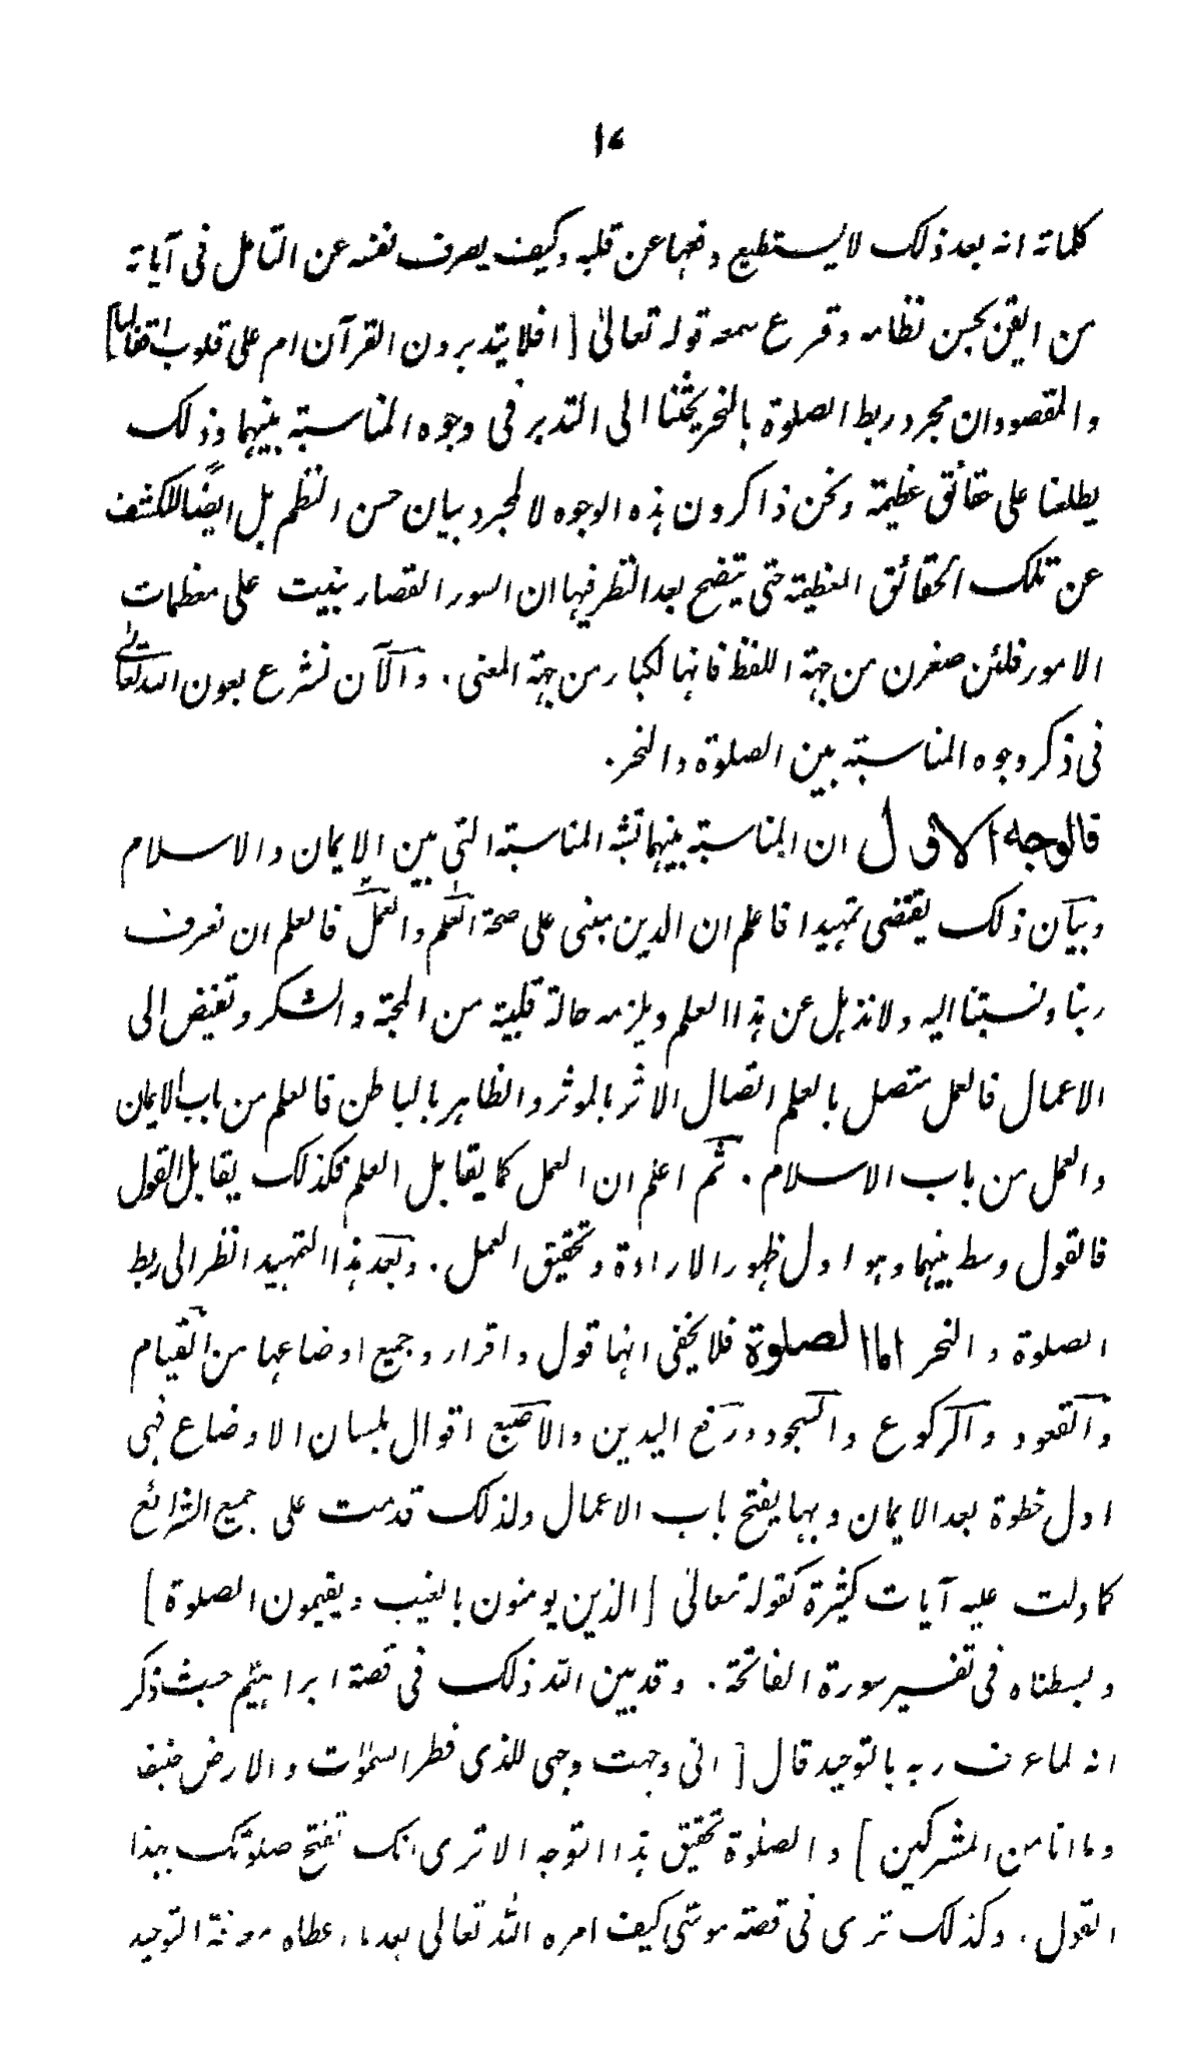 ١٤
كلماته انه بعد ذلك لا يستطيع دفعها عن قلبه وكيف يصرف نفسه عن التامل فى آياته
من ايقن بحسن نظامه وقرع سمعه قوله تعالىٰ [افلا يتدبرون القرآن ام على قلوب اقفالها]
والمقصود ان مجرد ربط الصلوٰة بالنحر يحثّنا الى التدبر فى وجوه المناسبة بينهما وذلك
يطلعنا على حقائق عظيمة ونحن ذاكرون هذه الوجوه لا لمجرد بيان حسن النظم بل ايضًا للكشف
عن تلك الحقائق العظيمة حتى يتضح بعد النظر فيها ان السور القصار بنيت على معظمات
الامور فلئن صغرن من جهة اللفظ فانها لكبار من جهة المعنى. والآن نشرع بعون الله تعالىٰ
فى ذكر وجوه المناسبة بين الصلوة والنحر.
فالوجه الاول ان المناسبة بينهما تشبه المناسبة التى بين الايمان والاسلام
وبيان ذلك يقتضى تمهيدا فاعلم ان الدين مبنى على صحة العلم والعمل فالعلم ان نعرف
ربنا ونسبتنا اليه ولا نذهل عن هذا العلم ويلزمه حالة قلبية من المحبة والشكر وتفيض الى
الاعمال فالعمل متصل بالعلم اتصال الاثر بالموثر والظاهر بالباطن فالعلم من باب الايمان
والعمل من باب الاسلام. ثم اعلم ان العمل كما يقابل العلم فكذلك يقابل القول
فالقول وسط بينهما وهو اول ظهور الارادة وتحقيق العمل. وبعد هذا التمهيد انظر الى ربط
الصلوة والنحر اما الصلوة فلا يخفى انها قول واقرار وجميع اوضاعها من القيام
والقعود والركوع والسجود ورفع اليدين والاصبع اقوال بلسان الاوضاع فهى
اول خطوة بعد الايمان وبها يفتح باب الاعمال ولذلك قدمت على جميع الشرائع
كما دلت عليه آيات كثيرة كقوله تعالىٰ [الذين يومنون بالغيب ويقيمون الصلوة]
وبسطناه فى تفسير سورة الفاتحة. وقد بين الله ذلك فى قصة ابراهيم حيث ذكر
انه لما عرف ربه بالتوحيد قال [انى وجهت وجهى للذى فطر السمٰوات والارض حنيفا
وما انا من المشركين] والصلوٰة تحقيق هذا التوجه الا ترى انك تفتح صلوتك بهذا
القول. وكذلك ترى فى قصة موسٰى كيف امره الله تعالى بعد ما اعطاه معرفة التوحيد